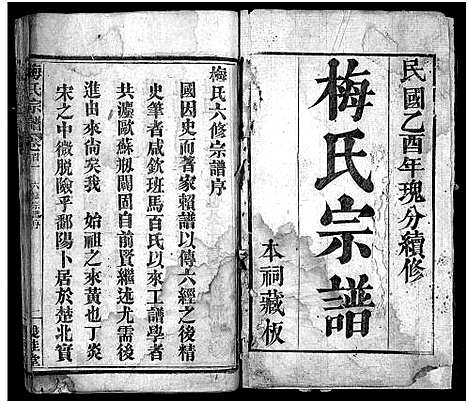 民國乙酉年瑰分續修
梅氏宗譜
本祠藏板
梅氏六修宗譜序
國因史而著家賴譜以傳六經之後精
史筆者咸欽班馬百氏以來工譜學者
共瀍歐蘇剏闢固自前賢繼述尤需後
進由來尚矣我　始祖之來黃也丁炎
宋之中微脫險乎鄱陽卜居於楚北實
梅氏宗譜